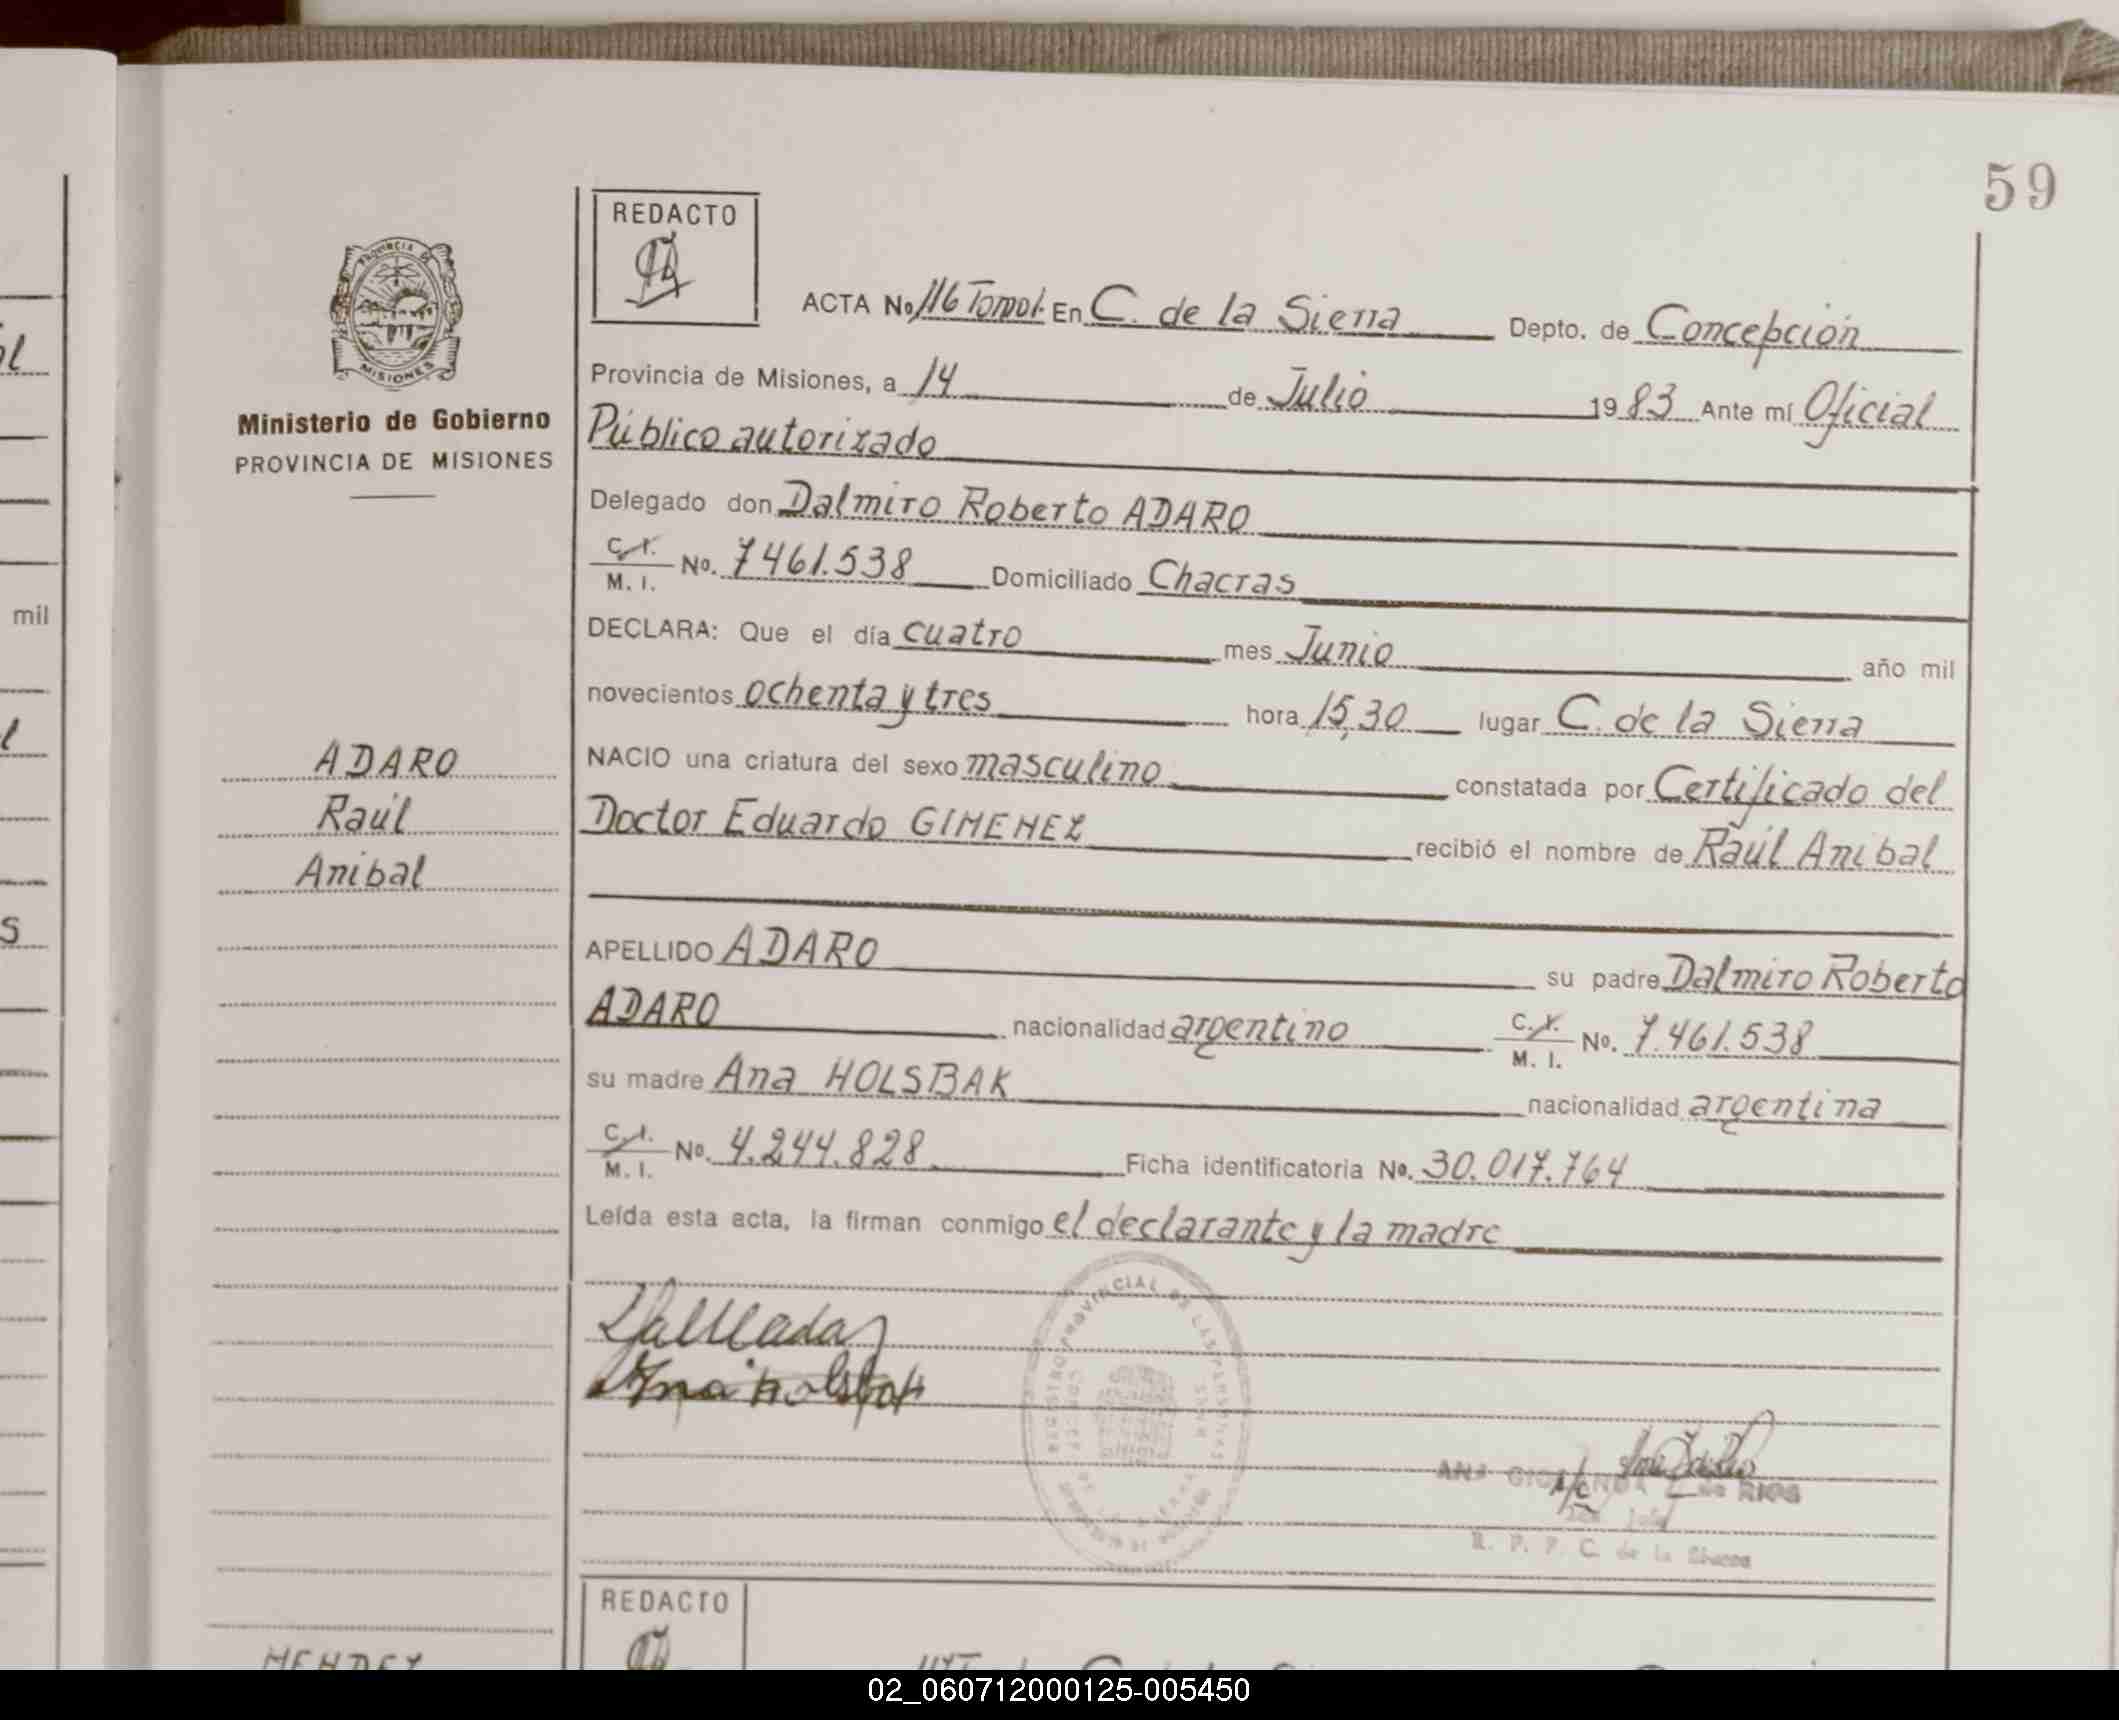 59
REDACTO
PROVINCIA DE
MISIONES
Ministerio de Gobierno
PROVINCIA DE MISIONES
ACTA No. 116 Tomo I. En C. de la Sierra Depto. de Concepción
Provincia de Misiones, a 14 de Julio 1983 Ante mí Oficial
Público autorizado
Delegado don Dalmiro Roberto ADARO
C. I. / M. I. No. 7461.538 Domiciliado Chacras
DECLARA: Que el día cuatro mes Junio año mil
novecientos ochenta y tres hora 15,30 lugar C. de la Sierra
NACIO una criatura del sexo masculino constatada por Certificado del
Doctor Eduardo GIMENEZ recibió el nombre de Raúl Anibal
ADARO
Raúl
Anibal
APELLIDO ADARO su padre Dalmiro Roberto
ADARO nacionalidad argentino C. I. / M. I. No. 7.461.538
su madre Ana HOLSBAK nacionalidad argentina
C. I. / M. I. No. 4.244.828 Ficha identificatoria No. 30.017.764
Leída esta acta, la firman conmigo el declarante y la madre
REGISTRO PROVINCIAL DE LAS PERSONAS
de RIOS
R. P. P. C. de la Sierra
REDACTO
MENDEZ
mil
02_060712000125-005450